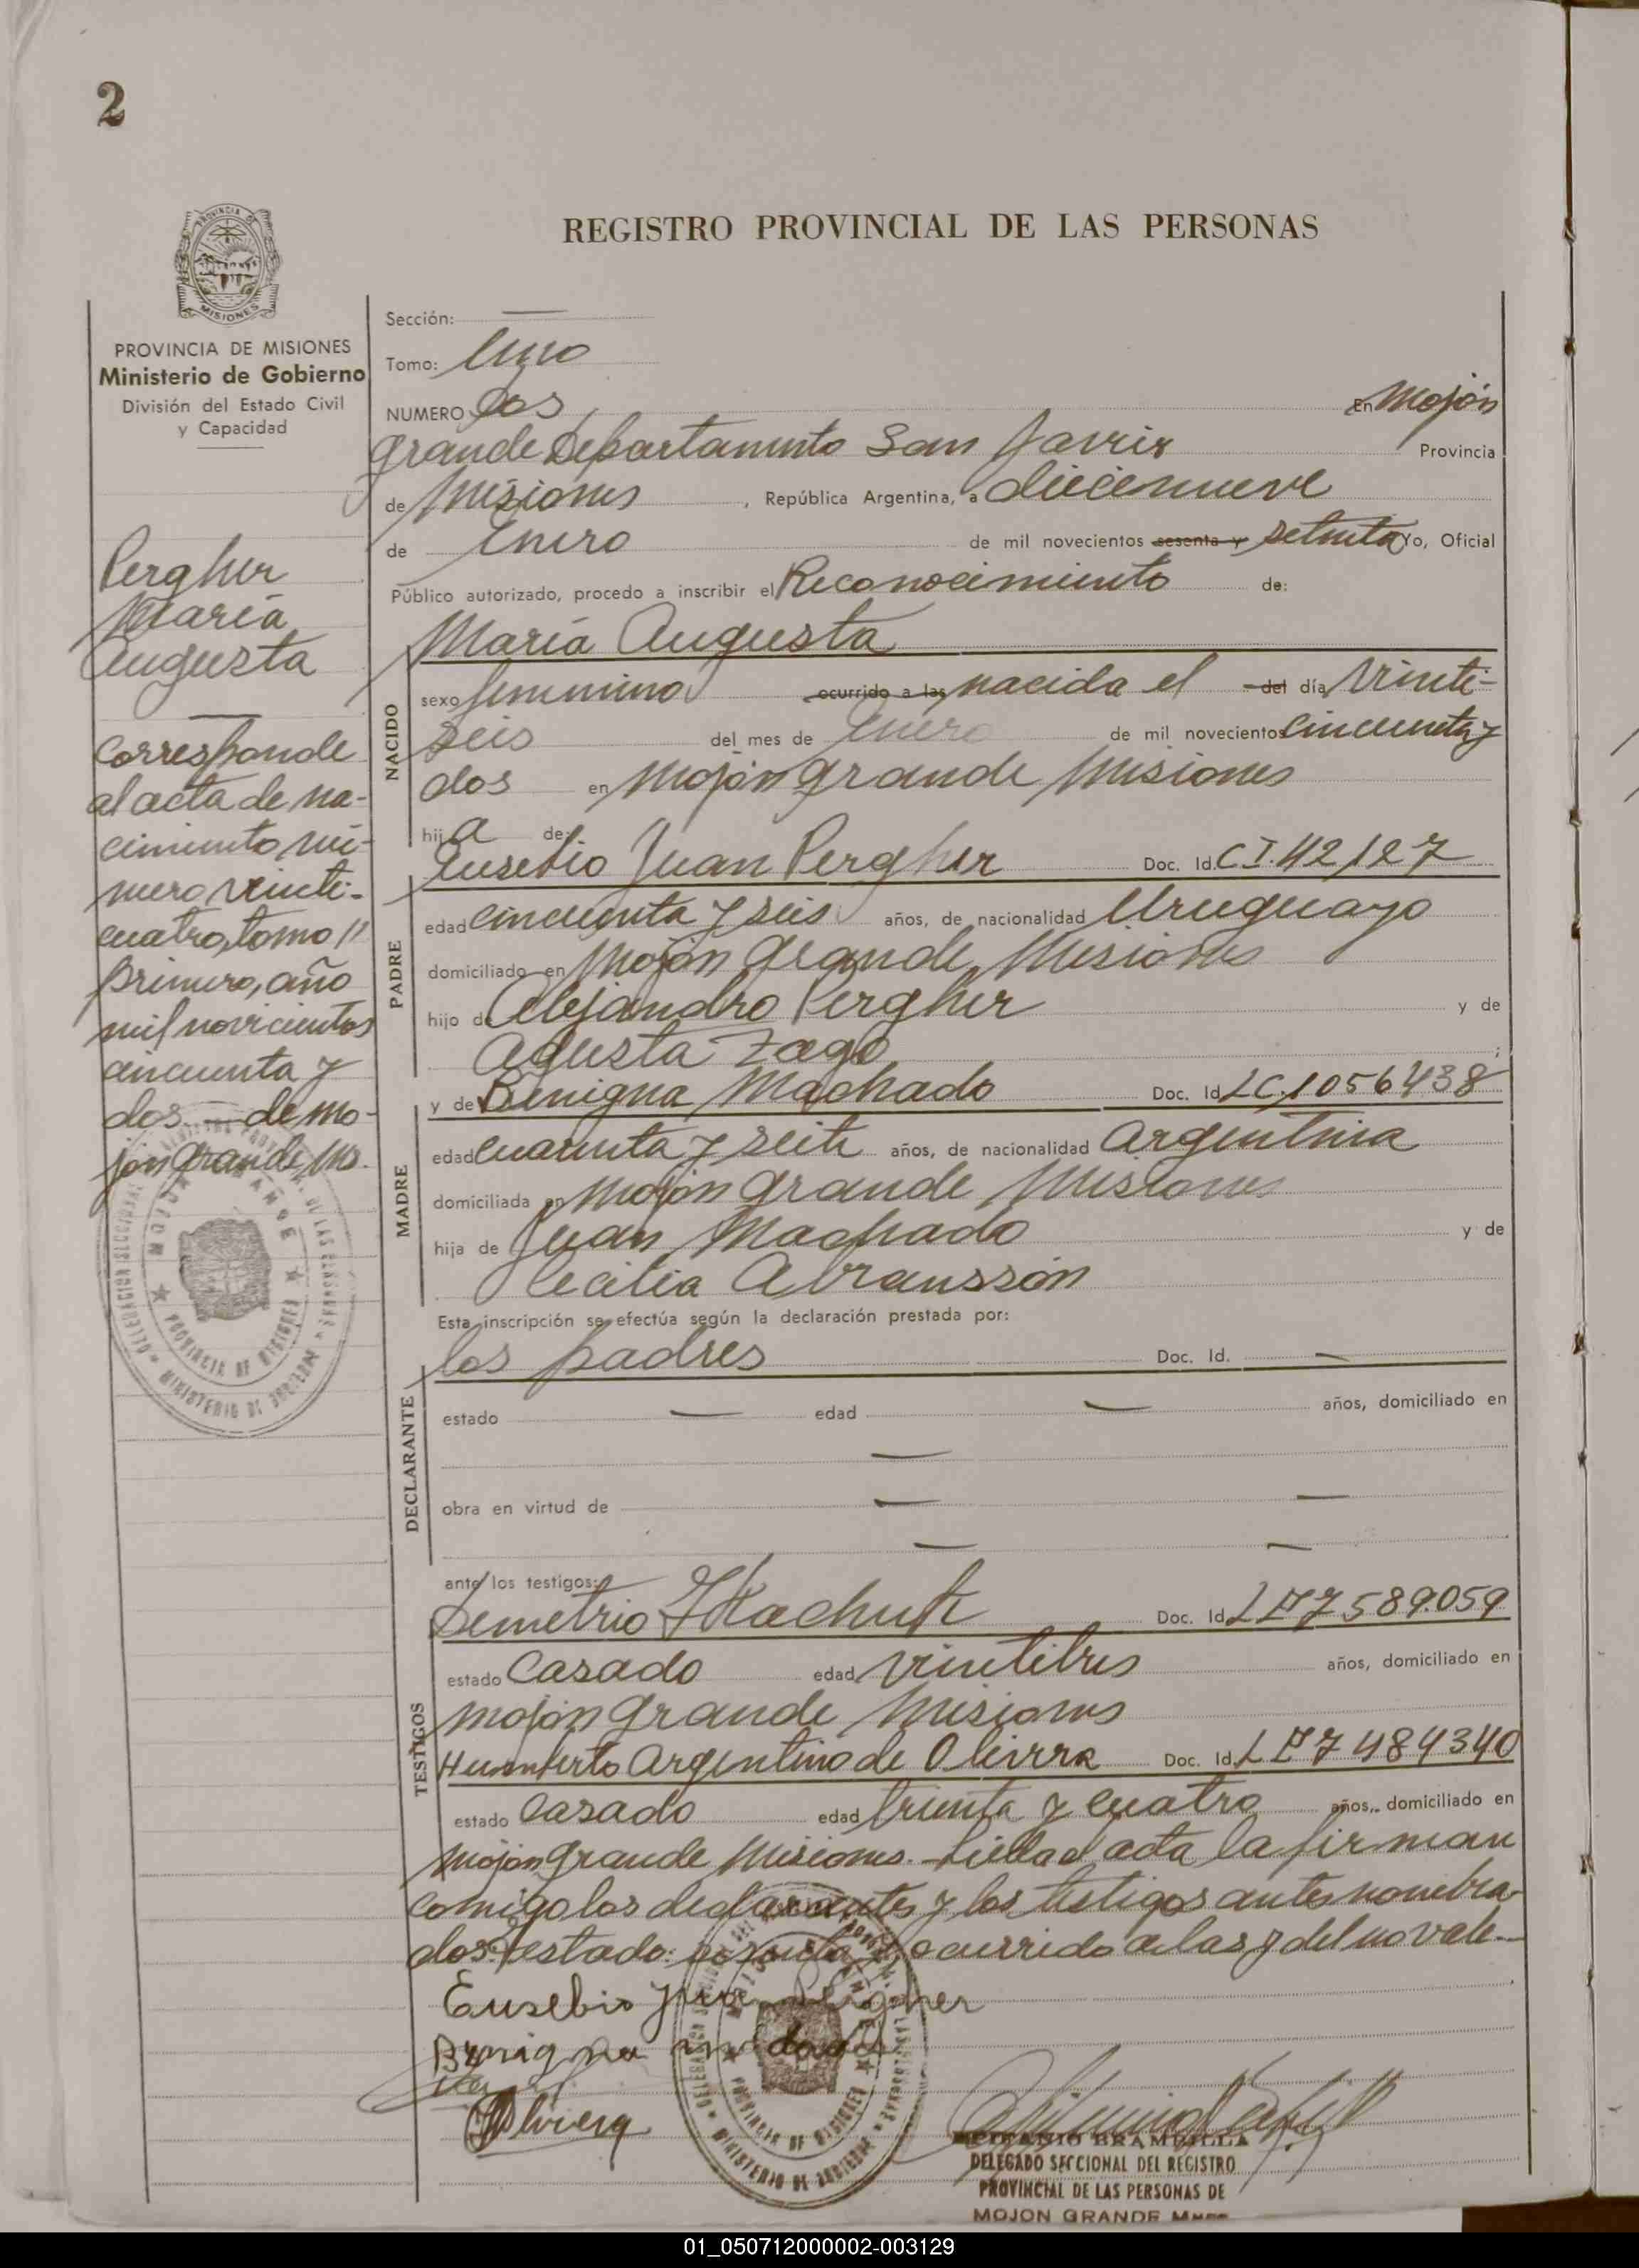 2
REGISTRO PROVINCIAL DE LAS PERSONAS
PROVINCIA DE
MISIONES
PROVINCIA DE MISIONES
Ministerio de Gobierno
División del Estado Civil
y Capacidad
Pergher
María
Augusta
Corresponde
al acta de na-
cimiento nú-
mero veinti-
cuatro, tomo
primero, año
mil novecientos
cincuenta y
dos. — de Mo-
jón Grande, Ms.
Sección: —
Tomo: Uno
NUMERO Dos, En Mojón
Grande Departamento San Javier Provincia
de Misiones, República Argentina, a diecinueve
de Enero de mil novecientos sesenta y setenta Yo, Oficial
Público autorizado, procedo a inscribir el Reconocimiento de:
María Augusta
NACIDO
sexo femenino ocurrido a las nacida el del día Veinti-
seis del mes de Enero de mil novecientos cincuenta y
dos en Mojón Grande Misiones
hija de:
Eusebio Juan Pergher Doc. Id. C I. 42127
PADRE
edad cincuenta y seis años, de nacionalidad Uruguayo
domiciliado en Mojón Grande, Misiones
hijo de Alejandro Pergher y de
Agusta Zago;
y de Benigna Machado Doc. Id LC.1056438
MADRE
edad cuarenta y seite años, de nacionalidad Argentina
domiciliada en Mojón Grande Misiones
hija de Juan Machado y de
Cecilia Abransson
Esta inscripción se efectúa según la declaración prestada por:
los padres Doc. Id. —
DECLARANTE
estado — edad — años, domiciliado en
—
obra en virtud de — —
— —
ante los testigos:
Demetrio Doc. Id LE 7589.059
TESTIGOS
estado Casado edad veintitres años, domiciliado en
Mojón Grande Misiones
Humberto Argentino de Oliveira Doc. Id. LE 7484340
estado Casado edad treinta y cuatro años, domiciliado en
Mojón Grande Misiones. Leida el acta la firman
comigo los declarantes y los testigos antes nombra-
dos. Testado: sesenta y ocurrido a las y del no vale.-
Eusebio Juan Pergher
Benigna
Olivera
BRAMBILLA
DELEGADO SECCIONAL DEL REGISTRO
PROVINCIAL DE LAS PERSONAS DE
MOJON GRANDE
01_050712000002-003129